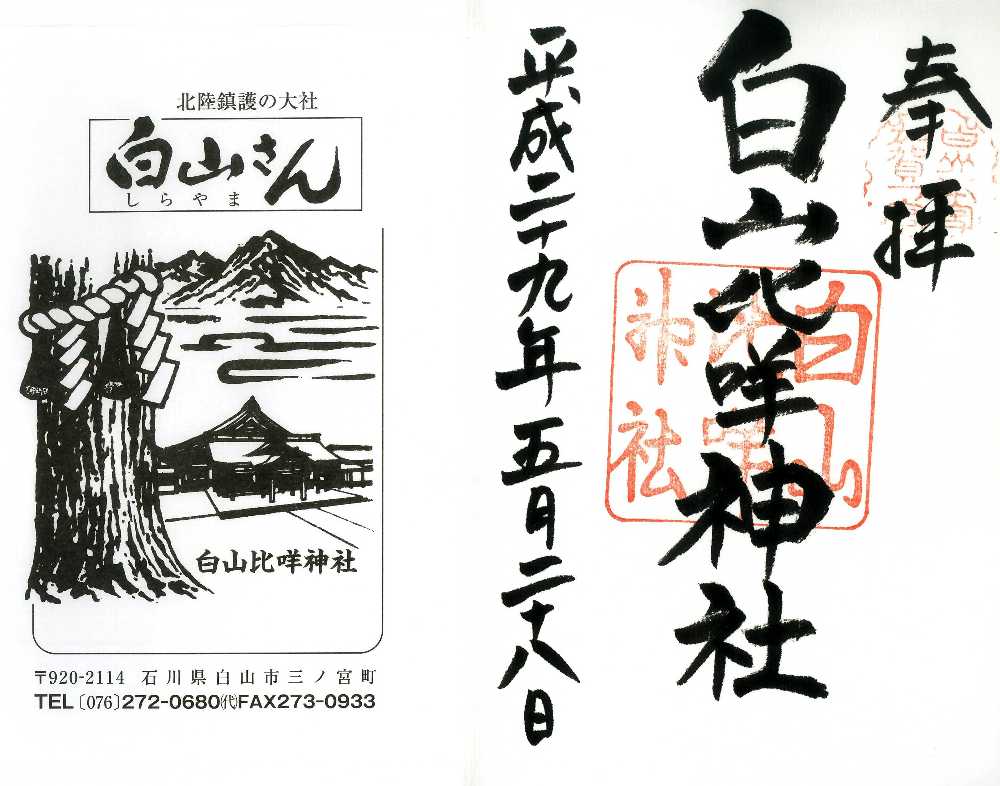 北陸鎮護の大社
白山さん
しらやま
白山比咩神社
〒920-2114 石川県白山市三ノ宮町
TEL〔076〕272-0680㈹FAX273-0933
奉拝
白山比咩神社
白山
比咩
神社
平成二十九年五月二十八日